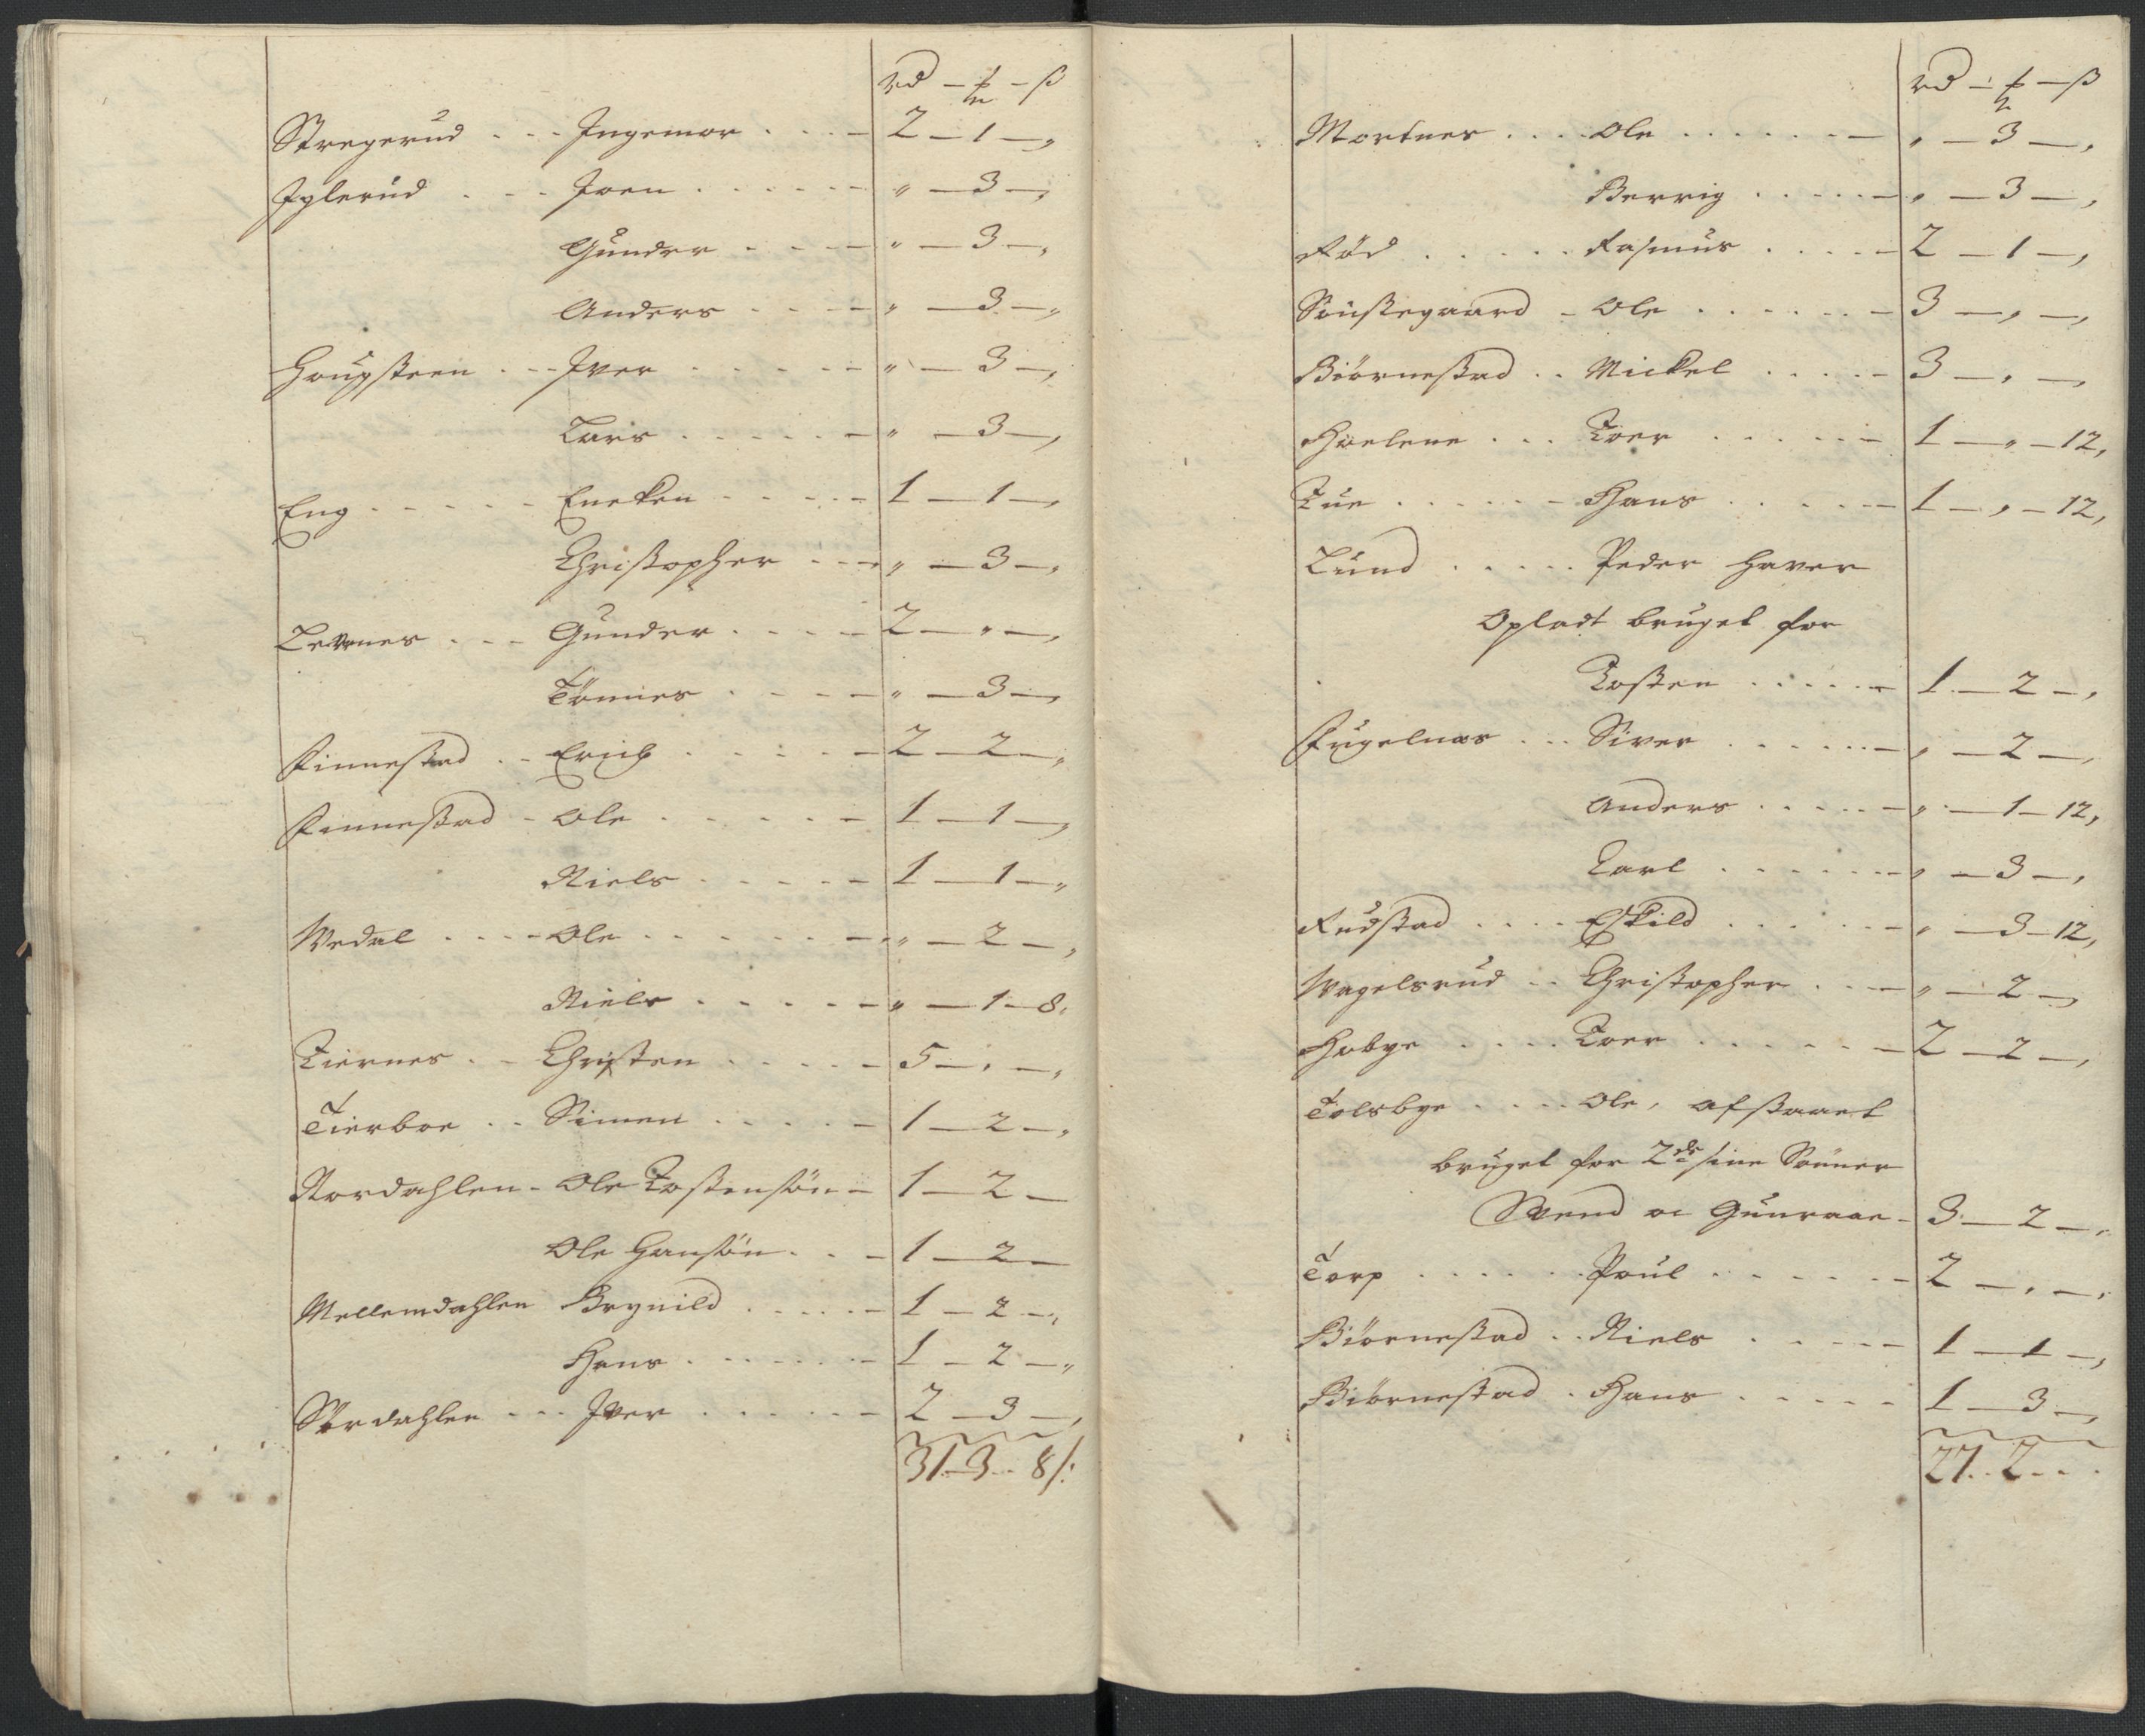 rd — ₻ — ß
Stregerud - - - Ingemor - - - - 2 — 1 — „
Iglerud - - - Joen - - - - - - „ — 3 — „
Gunder - - - - „ — 3 — „
Anders - - - - „ — 3 — „
Haugsteen - - - Iver - - - - - - „ — 3 — „
Lars - - - - - - „ — 3 — „
Eng - - - - - - Eneken - - - - - 1 — 1 — „
Christopher - - - „ — 3 — „
Levernes - - - Gunder - - - - 2 — „ — „
Tönnes - - - - „ — 3 — „
Finnestad - - Erich - - - - - 2 — 2 — „
Finnestad - Ole - - - - - - 1 — 1 — „
Niels - - - - - - 1 — 1 — „
Wedal - - - - Ole - - - - - - - „ — 2 — „
Niels - - - - - - „ — 1 — 8 „
Tiernes - - Christen - - - - - 5 — „ — „
Tierboe - - Simen - - - - - 1 — 2 — „
Nordahlen - Ole Tostensön - 1 — 2 —
Ole Hansön - - - 1 — 2 —
Mellemdahlen Brynild - - - - - 1 — 2 — „
Hans - - - - - - - 1 — 2 — „
Sördahlen - - - Iver - - - - - - 2 — 3 — „
31 — 3 - 8 /:
rd — ₻ — ß
Mortnes - - - - Ole - - - - - - - „ — 3 — „
Berrig - - - - - „ — 3 — „
Röd - - - - - Rasmus - - - - 2 — 1 — „
Ole - - - - - - 3 — „ — „
Biörnestad - - Mickel - - - - - 3 — „ — „
Huelene - - - Toer - - - - - - 1 — „ — 12 „
Tue - - - - - - Hans - - - - - 1 — „ — 12 „
Lund - - - - - Peder haver
Opladt bruget for
Tosten - - - - - - 1 — 2 — „
Fugelnæs - - - Siver - - - - - - - „ — 2 — „
Anders - - - - - „ — 1 — 12 „
Carl - - - - - - - „ — 3 — „
Rudstad - - - - Eskild - - - - - - „ — 3 — 12 „
Wagelsrud - - Christopher - - - „ — 2 — „
Habye - - - - Toer - - - - - - 2 — 2 — „
Tolsbye - - - - Ole, afstaaet
bruget for 2de sine Sönner
Svend oc Gunraae - 3 — 2 — „
Torp - - - - - - Poul - - - - - - 2 — „ — „
Biörnestad - - Niels - - - - - 1 — 1 — „
Biörnestad - Hans - - - - - 1 — 3 — „
27 - 2 - - -